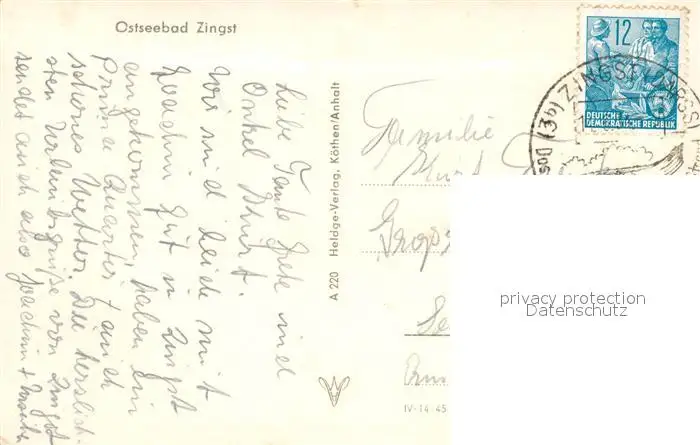 Ostseebad Zingst
Liebe Tante Grete und
Onkel Kurt.
Wir sind beide mit
Joachim gut in Zingst
angekommen, haben ein
prima Quartier, auch
schönes Wetter. Die herzlich-
sten Urlaubsgrüße von Zingst
sendet euch also Joachim +
A 220 Heldge-Verlag, Köthen/Anhalt
IV-14 45
12
DEUTSCHE
DEMOKRATISCHE REPUBLIK
(3b) ZINGST
Familie
Kurt
privacy protection
Datenschutz